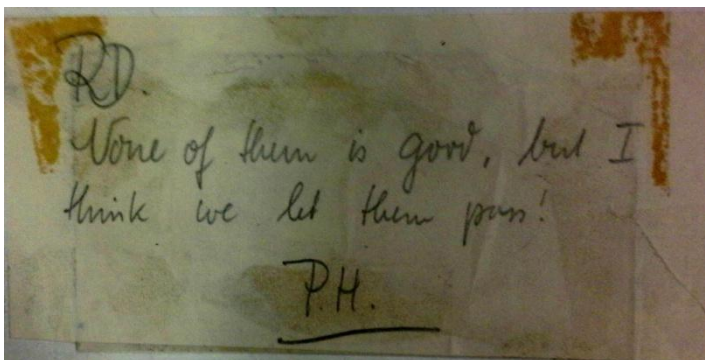 RD.
None of them is good, but I
think we let them pass!
P.H.